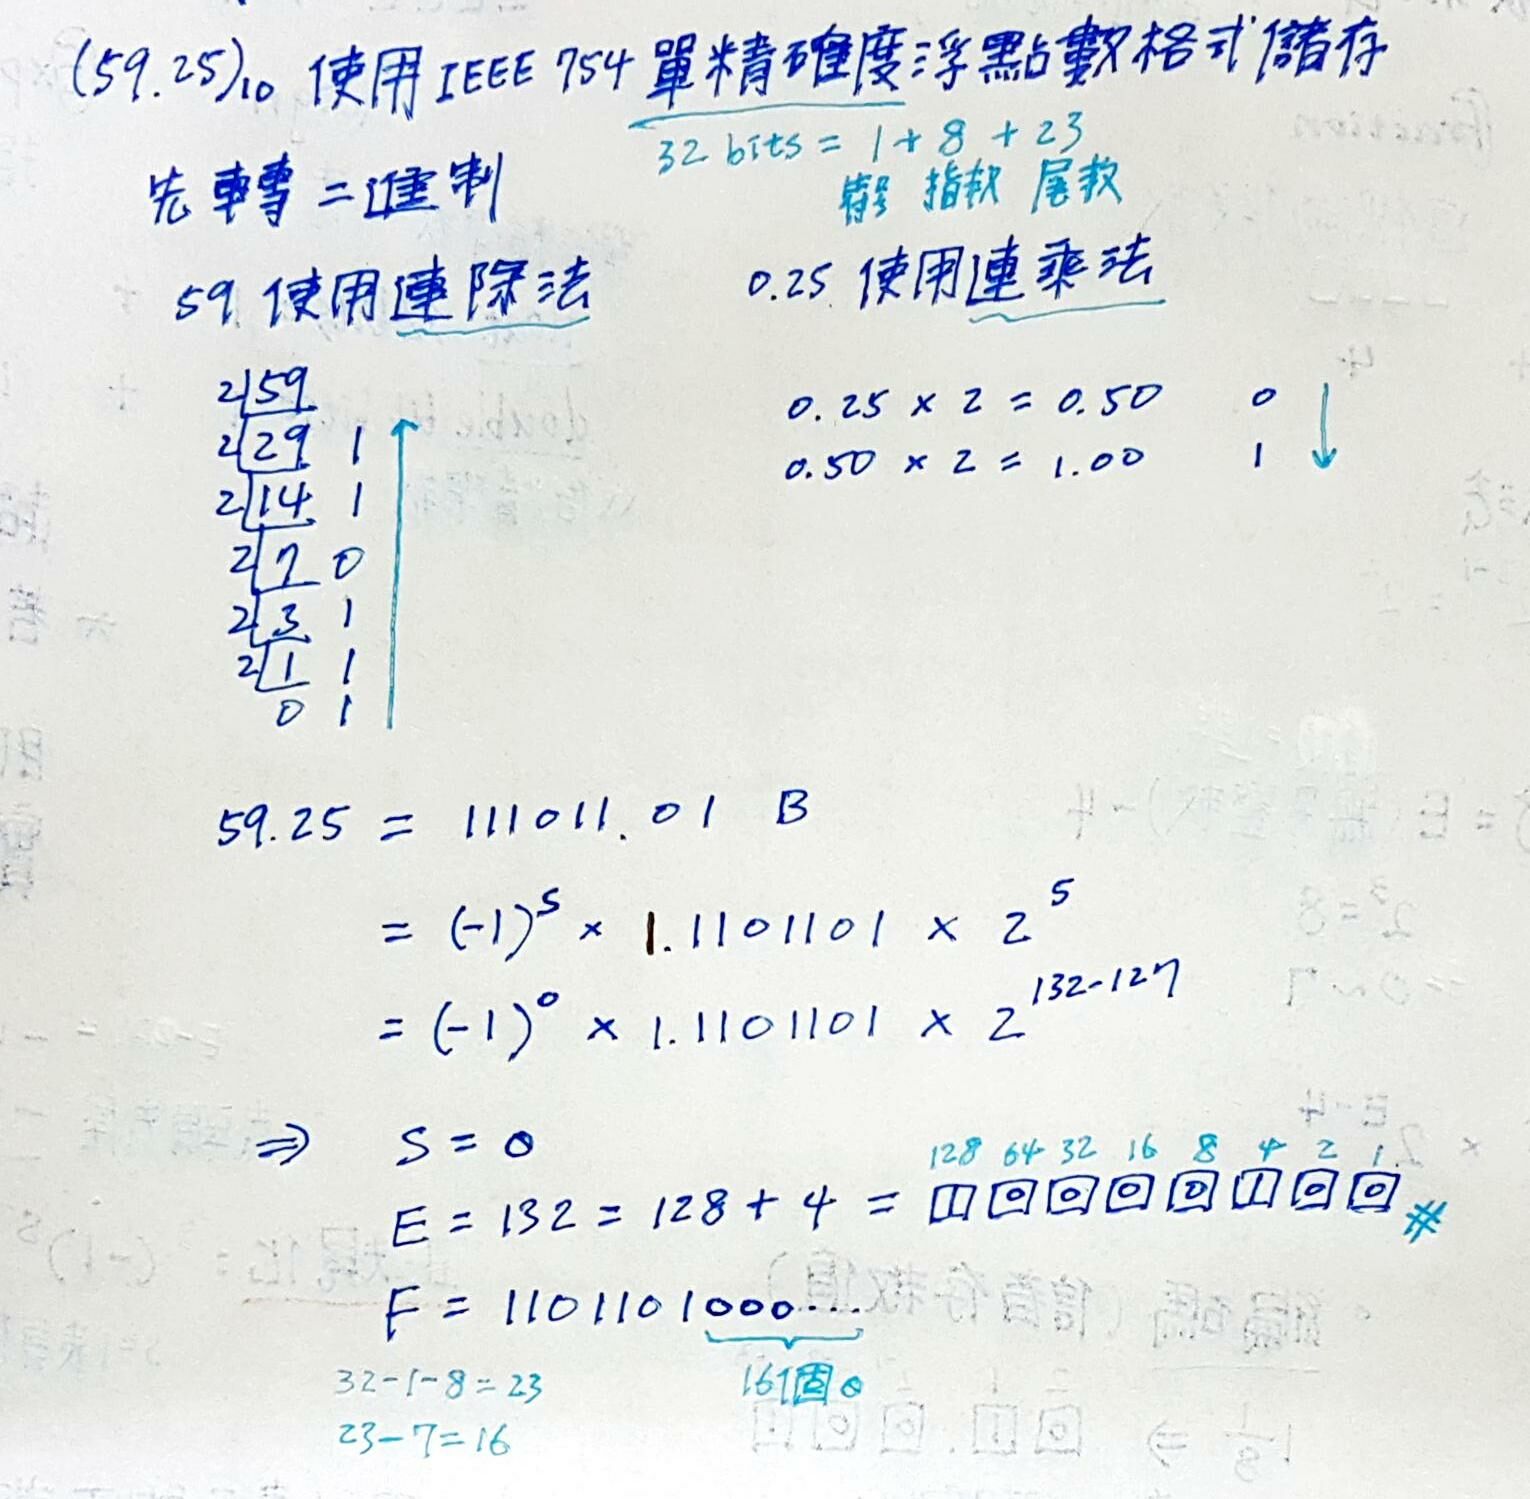 (59.25)₁₀ 使用 IEEE 754 單精確度浮點數格式儲存
32 bits = 1 + 8 + 23
符號 指數 尾數
先轉二進制
59 使用連除法
0.25 使用連乘法
2 59
2 29 1
2 14 1
2 7 0
2 3 1
2 1 1
0 1
0.25 × 2 = 0.50 0
0.50 × 2 = 1.00 1
59.25 = 111011.01 B
= (-1)^S × 1.1101101 × 2^5
= (-1)^0 × 1.1101101 × 2^132-127
⇒ S = 0
128 64 32 16 8 4 2 1
E = 132 = 128 + 4 = 1 0 0 0 0 1 0 0 #
F = 1101101000...
16個0
32-1-8=23
23-7=16